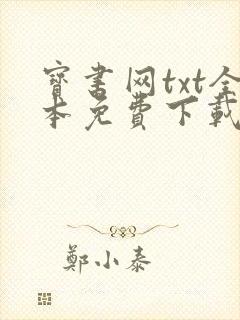 寶書网txt全
本免費下載
鄭小泰